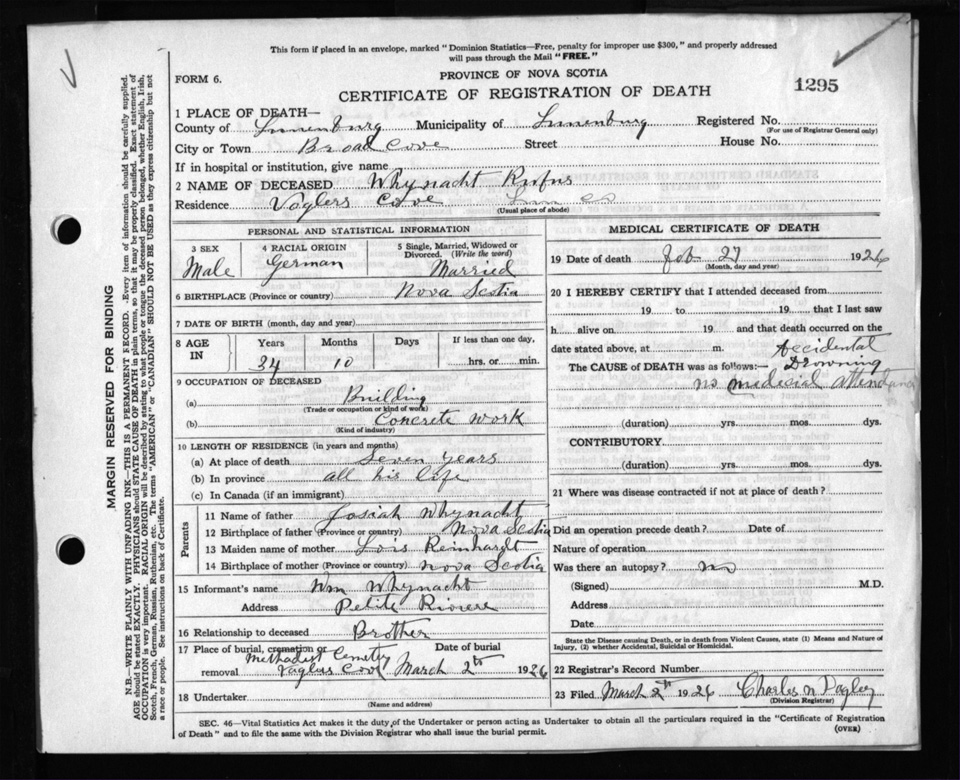 This form if placed in an envelope, marked "Dominion Statistics—Free, penalty for improper use $300," and properly addressed
will pass through the Mail "FREE."
FORM 6.
PROVINCE OF NOVA SCOTIA
CERTIFICATE OF REGISTRATION OF DEATH
1295
1 PLACE OF DEATH—
County of Lunenburg Municipality of Lunenburg Registered No.
(For use of Registrar General only)
City or Town Broad Cove Street House No.
If in hospital or institution, give name
2 NAME OF DECEASED Whynacht Rufus
Residence Voglers Cove Lun Co
(Usual place of abode)
PERSONAL AND STATISTICAL INFORMATION
3 SEX 4 RACIAL ORIGIN 5 Single, Married, Widowed or Divorced. (Write the word)
Male German Married
6 BIRTHPLACE (Province or country) Nova Scotia
7 DATE OF BIRTH (month, day and year)
8 AGE IN Years Months Days If less than one day,
34 10 hrs. or min.
9 OCCUPATION OF DECEASED
(a) Building
(Trade or occupation or kind of work)
(b) Concrete work
(Kind of industry)
10 LENGTH OF RESIDENCE (in years and months)
(a) At place of death Seven years
(b) In province all his life
(c) In Canada (if an immigrant)
Parents
11 Name of father Josiah Whynacht
12 Birthplace of father (Province or country) Nova Scotia
13 Maiden name of mother Lois Reinhardt
14 Birthplace of mother (Province or country) Nova Scotia
15 Informant's name Wm Whynacht
Address Petite Riviere
16 Relationship to deceased Brother
17 Place of burial, cremation or removal Date of burial
Methodist Cemetry
Voglers Cove March 2nd 1926
18 Undertaker
(Name and address)
MEDICAL CERTIFICATE OF DEATH
19 Date of death Feb 27 1926
(Month, day and year)
20 I HEREBY CERTIFY that I attended deceased from
19 to 19 that I last saw
h alive on 19 and that death occurred on the
date stated above, at m. Accidental
The CAUSE of DEATH was as follows:— Drowning
no medical attendance
(duration) yrs. mos. dys.
CONTRIBUTORY
(duration) yrs. mos. dys.
21 Where was disease contracted if not at place of death?
Did an operation precede death? Date of
Nature of operation
Was there an autopsy? no
(Signed) M.D.
Address
Date
State the Disease causing Death, or in death from Violent Causes, state (1) Means and Nature of
Injury, (2) whether Accidental, Suicidal or Homicidal.
22 Registrar's Record Number
23 Filed March 2nd 1926 Charles N
(Division Registrar)
SEC. 46—Vital Statistics Act makes it the duty of the Undertaker or person acting as Undertaker to obtain all the particulars required in the "Certificate of Registration
of Death" and to file the same with the Division Registrar who shall issue the burial permit.
(OVER)
MARGIN RESERVED FOR BINDING
N.B.—WRITE PLAINLY WITH UNFADING INK—THIS IS A PERMANENT RECORD. Every item of information should be carefully supplied.
AGE should be stated EXACTLY. PHYSICIANS should STATE CAUSE OF DEATH in plain terms, so that it may be properly classified. Exact statement of
OCCUPATION is very important. RACIAL ORIGIN will be described by stating to what people or tongue the deceased person belonged, whether English, Irish,
Scotch, French, German, Russian, Ruthenian, etc. The terms "AMERICAN" or "CANADIAN" SHOULD NOT BE USED as they express citizenship but not
a race or people. See instructions on back of Certificate.